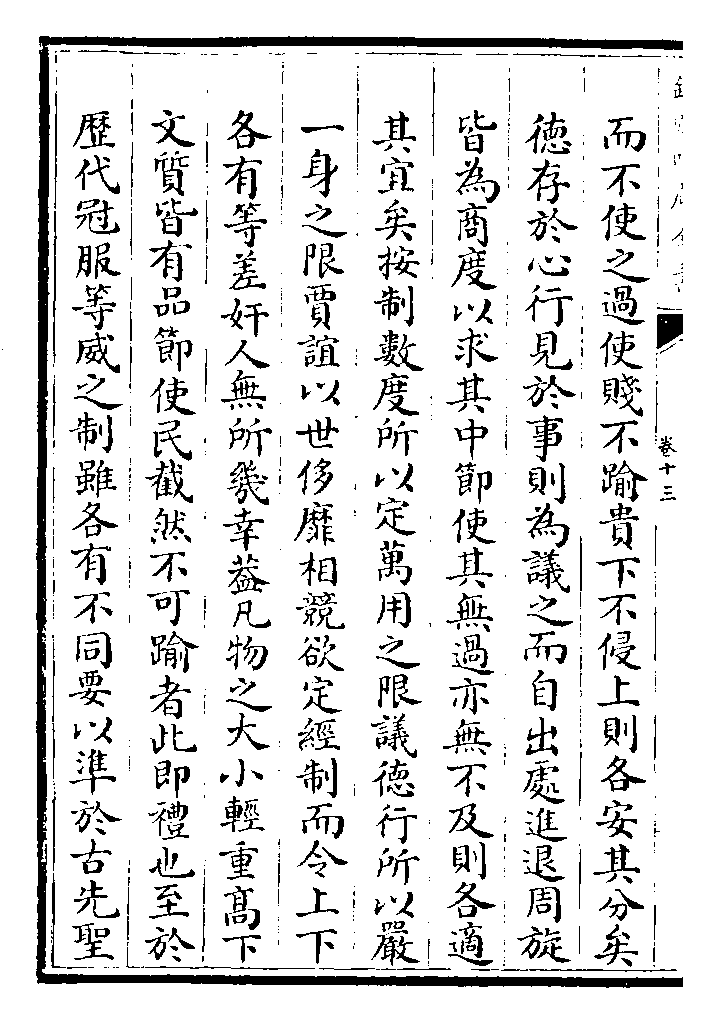 卷十三
而不使之過使賤不踰貴下不侵上則各安其分矣
德存於心行見於事則為議之而自出處進退周旋
皆為商度以求其中節使其無過亦無不及則各適
其宜矣按制數度所以定萬用之限議德行所以嚴
一身之限賈誼以世侈靡相競欲定經制而令上下
各有等差奸人無所幾幸葢凡物之大小輕重高下
文質皆有品節使民截然不可踰者此即禮也至於
歴代冠服等威之制雖各有不同要以準於古先聖